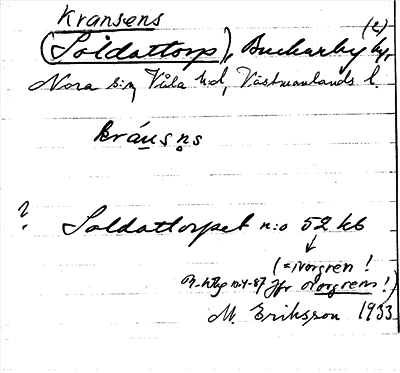 Kransens
(Soldattorp), Buckarby by, (c)
Nora s:n, Våla h:d, Västmanlands l.
kráns n̥s
? Soldattorpet n:o 52 kb
↓
(= Norgren !
jfr Norgrens !)
M. Eriksson 1933